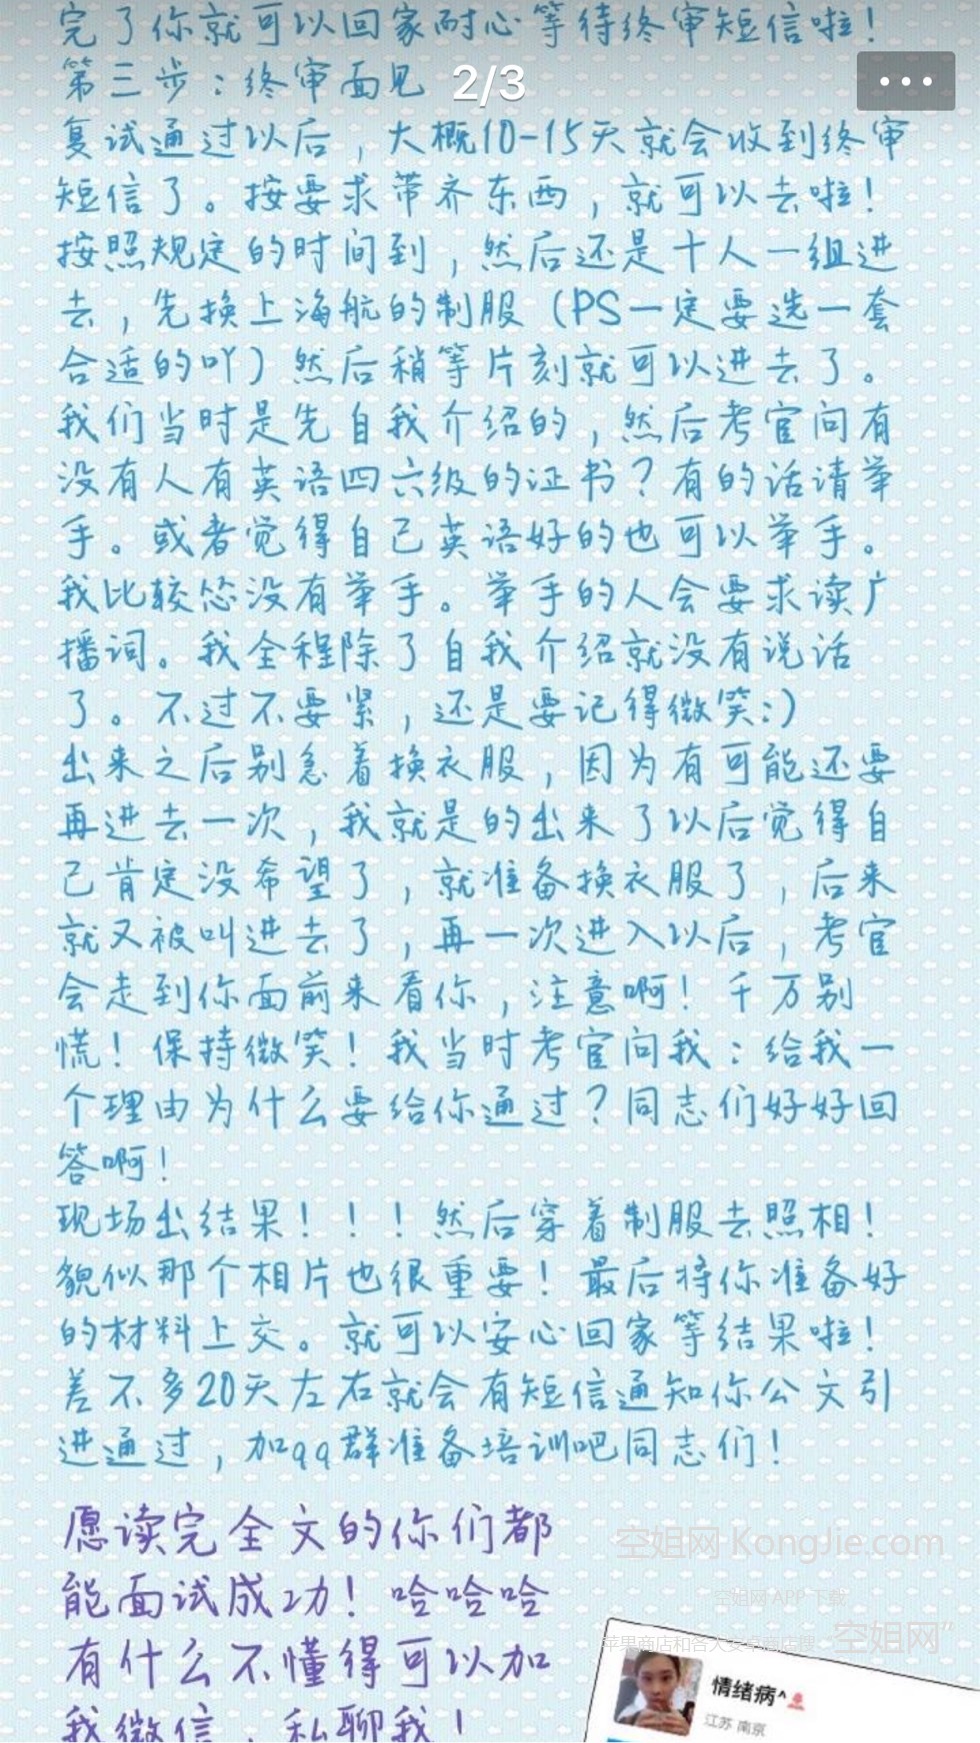 完了你就可以回家耐心等待终审短信啦！
第三步：终审面见
2/3
复试通过以后，大概10-15天就会收到终审
短信了。按要求带齐东西，就可以去啦！
按照规定的时间到，然后还是十人一组进
去，先换上海航的制服（PS一定要选一套
合适的吖）然后稍等片刻就可以进去了。
我们当时是先自我介绍的，然后考官问有
没有人有英语四六级的证书？有的话请举
手。或者觉得自己英语好的也可以举手。
我比较怂没有举手。举手的人会要求读广
播词。我全程除了自我介绍就没有说话
了。不过不要紧，还是要记得微笑:)
出来之后别急着换衣服，因为有可能还要
再进去一次，我就是的出来了以后觉得自
己肯定没希望了，就准备换衣服了，后来
就又被叫进去了，再一次进入以后，考官
会走到你面前来看你，注意啊！千万别
慌！保持微笑！我当时考官问我：给我一
个理由为什么要给你通过？同志们好好回
答啊！
现场出结果！！！然后穿着制服去照相！
貌似那个相片也很重要！最后将你准备好
的材料上交。就可以安心回家等结果啦！
差不多20天左右就会有短信通知你公文引
进通过，加qq群准备培训吧同志们！
愿读完全文的你们都
能面试成功！哈哈哈
有什么不懂得可以加
我微信，私聊我！
空姐网 KongJie.com
空姐网 APP 下载
空姐网”
情绪病^
江苏 南京